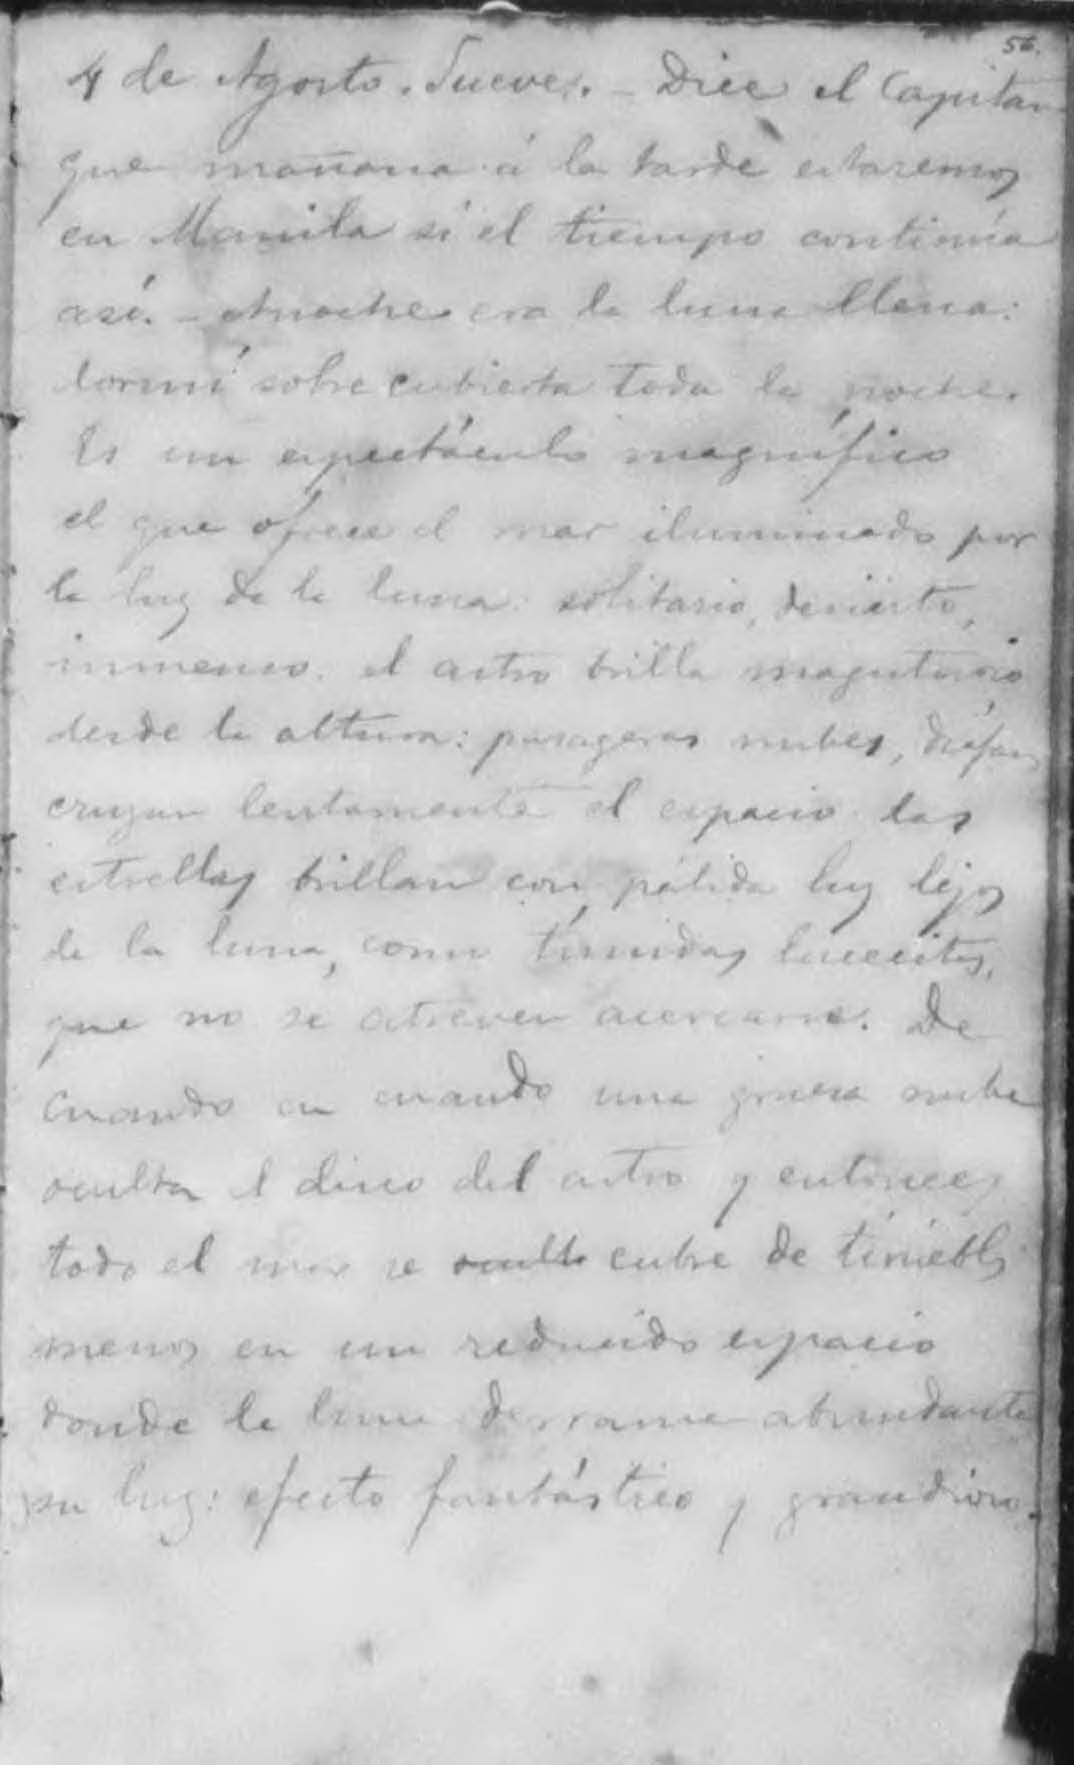 56.
4 de Agosto. Jueves. – Dice el Capitan
que mañana á la tarde estaremos
en Manila si el tiempo continúa
así. – Anoche era la luna llena:
dormí sobre cubierta toda la noche.
Es un espectáculo magnífico
el que ofrece el mar iluminado por
la luz de la luna: solitario, desierto,
inmenso. el astro brilla magestuoso
desde la altura: pasageras nubes, diáfan
cruzan lentamente el espacio. las
estrellas brillan con pálida luz lejos
de la luna, como tímidas lucecitas,
que no se atreven acercarse. De
cuando en cuando una gruesa nube
oculta el disco del astro y entonces
todo el mar se oculta cubre de tinieblas
menos en un reducido espacio
donde la luna derrama abundante
su luz: efecto fantástico y grandioso.